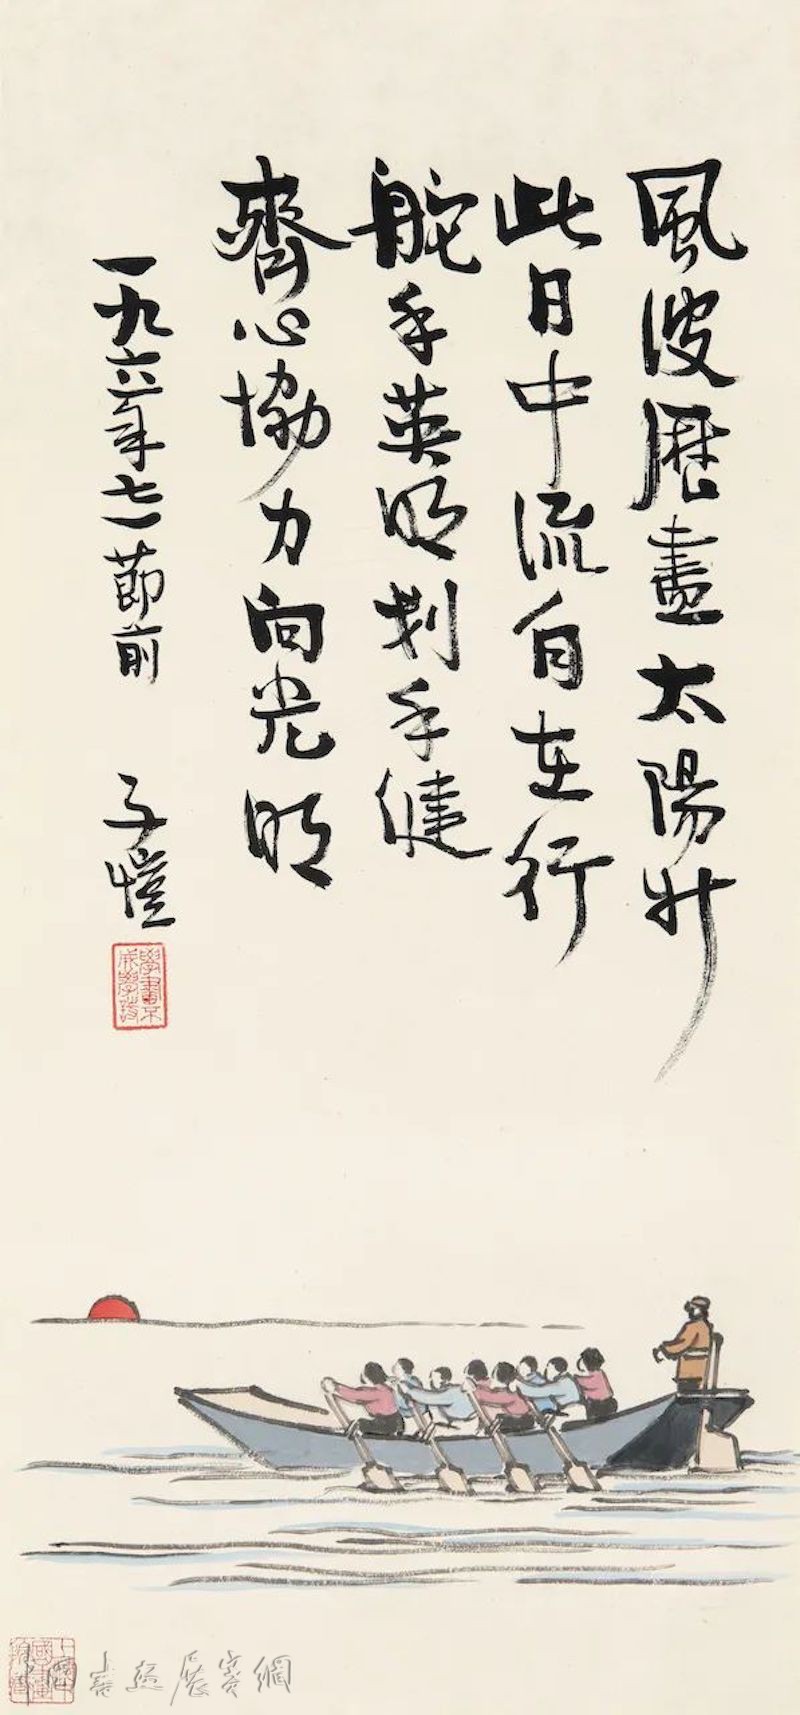 風波歷盡太陽升
此日中流自在行
舵手英明划手健
齊心協力向光明
一九六一年七一節前
子愷
學畫不成學書